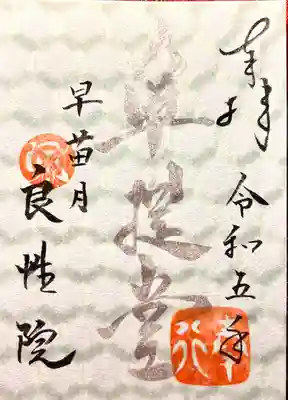 奉拝
令和五年
準提堂
早苗月
良性院